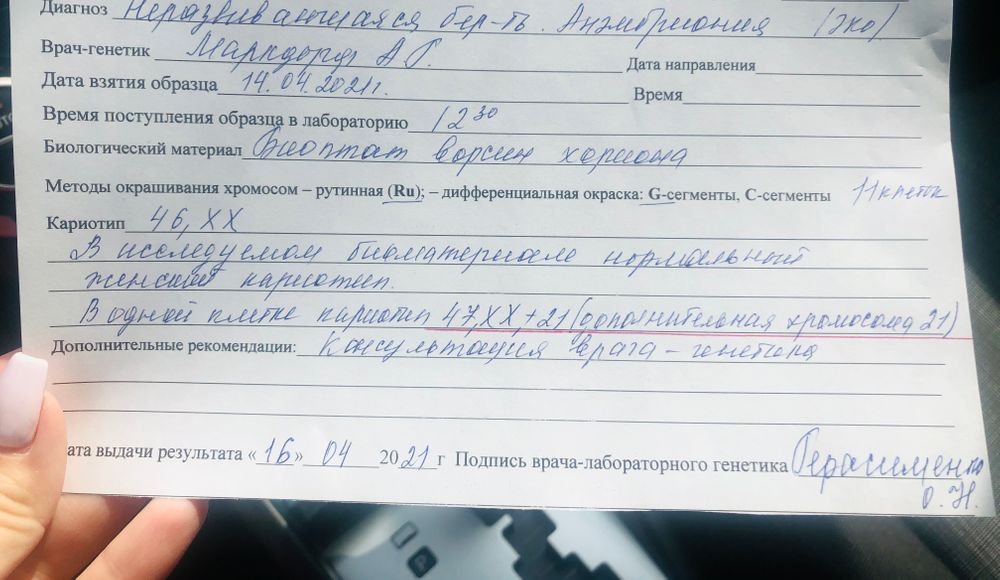 Диагноз Неразвивающаяся бер-ть. Анэмбриония (эко)
Врач-генетик А Г.
Дата направления
Дата взятия образца 14.04.2021г.
Время
Время поступления образца в лабораторию 12 30
Биологический материал Биоптат ворсин хориона
Методы окрашивания хромосом – рутинная (Ru); – дифференциальная окраска: G-сегменты, C-сегменты 11 клеток
Кариотип 46, XX
В исследуемом биоматериале нормальный
женский кариотип.
В одной клетке кариотип 47,XX,+21 (дополнительная хромосома 21)
Дополнительные рекомендации: Консультация врача-генетика
ата выдачи результата «16» 04 2021 г Подпись врача-лабораторного генетика Герасименко
О. Н.